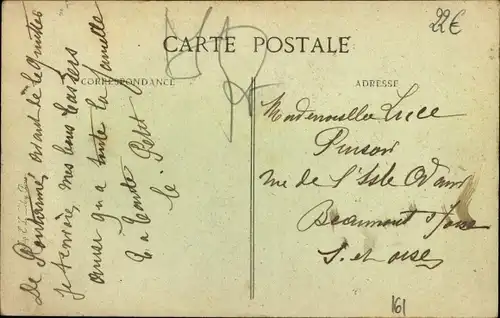 22€
CARTE POSTALE
CORRESPONDANCE
ADRESSE
De avant de le quitter
je t'envoie, mes bons baisers
ainsi qu'a toute la famille
E. Petit
Mademoiselle Luce
Pinson
rue de l'Isle Adam
Beaumont s/Oise
S. et Oise
161